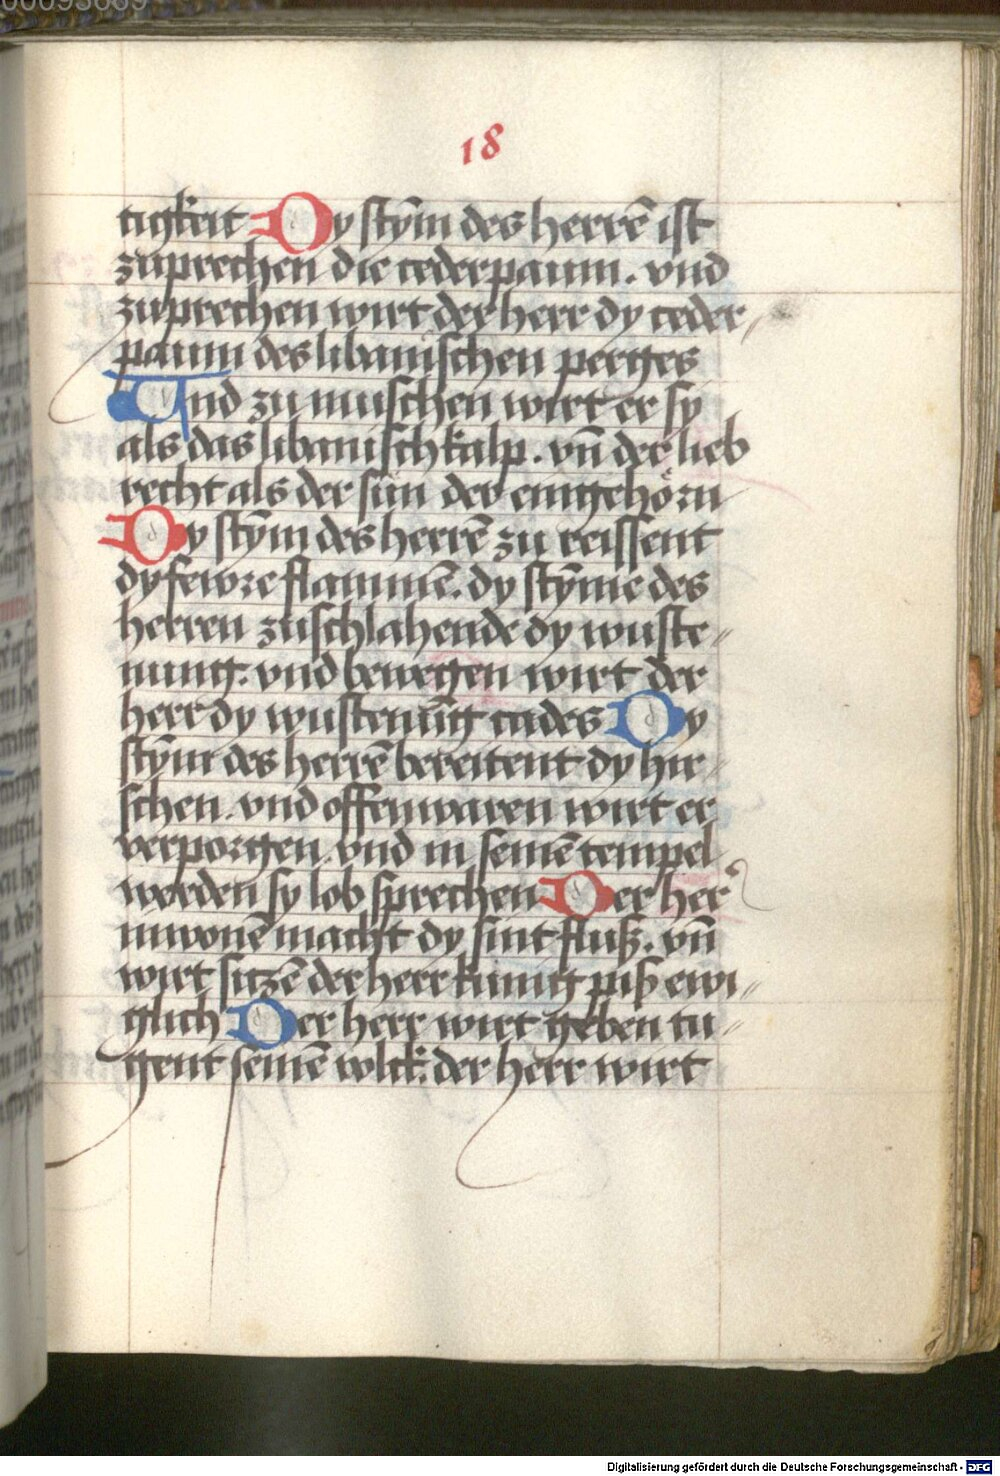 00093089
18
tigkeit Dy stȳm des herrē ist
zuprechen die cederpaum. vnd
zuprechen wirt der herr dy ceder„
paum des libanischen perges
Vnd zu muschen wirt er sy
als das libanisch kalp. vn̄ der lieb
recht als der sun der eingehörn
Dy stȳm des herrē zu reissent
dy fewre flammē. dy stȳme des
herren zuschlahende dy wuste„
nung. vnd bewegen wirt der
herr dy wustenūg cades Dy
stȳm des herrē bereitent dy hir„
schen. vnd offenwaren wirt er
verporgen. vnd in seinē tempel
werden sy lob sprechen Der her
inwonē macht dy sint fluß. vn̄
wirt sitzē der herr kunig piß ewi„
glich Der herr wirt geben tu„
gent seinē volck. der herr wirt
Digitalisierung gefördert durch die Deutsche Forschungsgemeinschaft - DFG